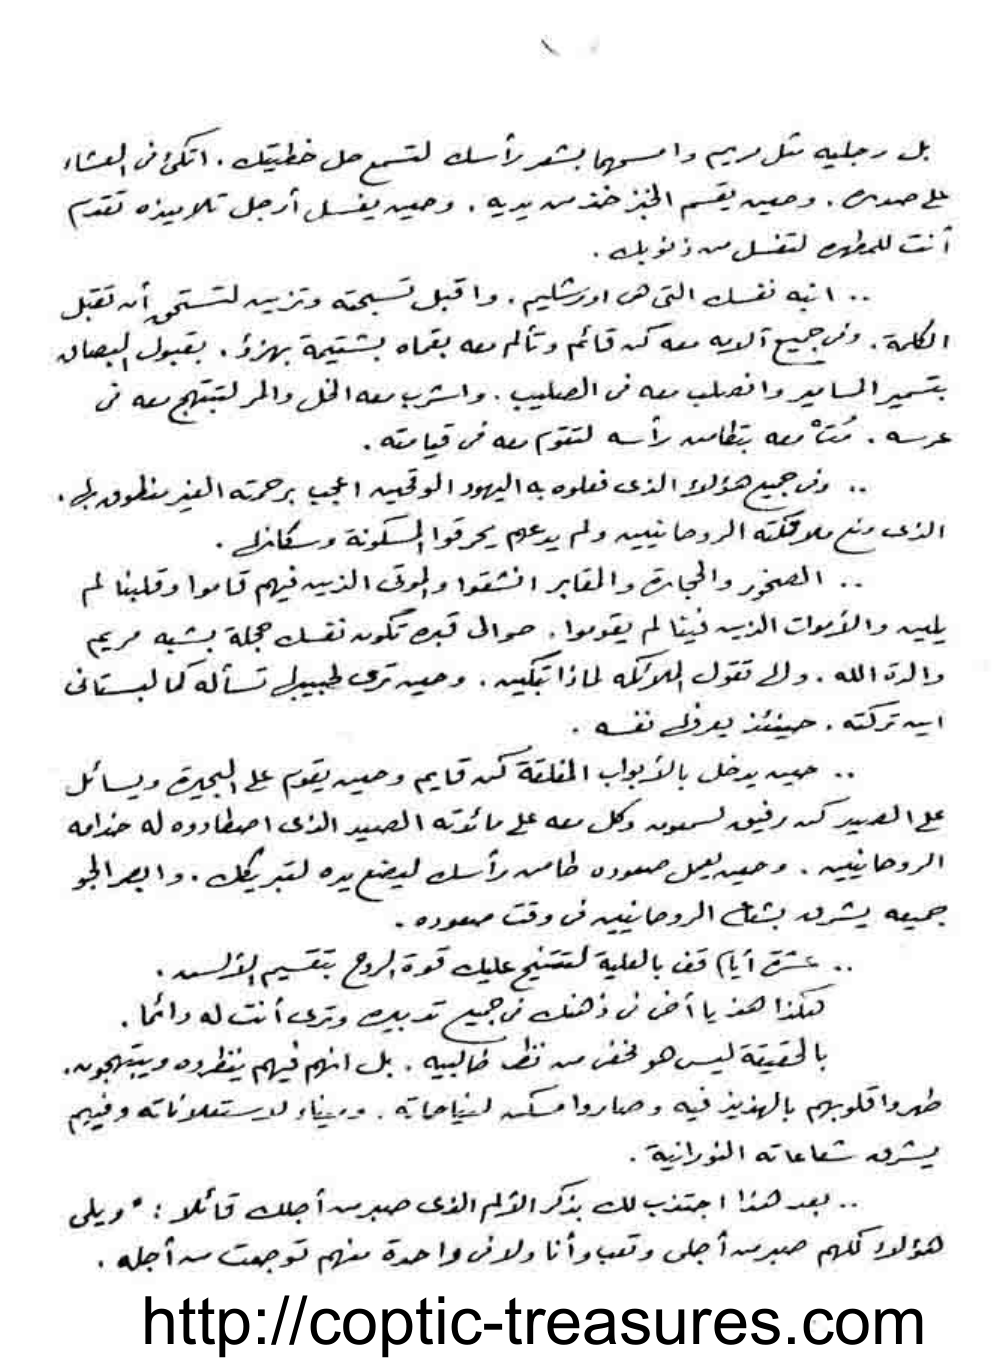 بل رجليه مثل مريم وامسحهما بشعر رأسك لتسمع حل خطيتك . اتكئ فى العشاء
على صدره . وحين يقسم الخبز خذ من يديه . وحين يغسل أرجل تلاميذه تقدم
أنت للمطهره لتغسل من ذنوبك .
.. ابنه نفسك التى هى اورشليم . واقبل تسبحته وتزين لتستحق أن تقبل
الكلمة . وفى جميع آلامه معه كن قائم وتألم معه بقماه بشتيمة بهزؤ . بقبول البصاق
بتسمير المسامير وانصلب معه فى الصليب . واشرب معه الخل والمر لتبتهج معه فى
عرسه . مُتْ معه بتطامن رأسه لتقوم معه فى قيامته .
.. وفى جميع هؤلاء الذى فعلوه به اليهود الوقحين اعجب برحمته الغير منطوق بها .
الذى منع ملائكته الروحانيين ولم يدعهم يحرقوا المسكونة وسكانها .
.. الصخور والحجارة والمقابر انشقوا والموتى الذين فيهم قاموا وقلبنا لم
يلين والأموات الذين فينا لم يقوموا . حوالى قبره تكون نفسك حجلة بشبه مريم
والدة الله . ولها تقول الملائكه لماذا تبكين . وحين ترى طبيبها تسأله كما لبستانى
اين تركته . حينئذ يعرفها نفسه .
.. حين يدخل بالأبواب المغلقة كن قايم وحين يقوم على البحيرة ويسائل
على الصيد كن رفيق لسمعون وكل معه على مائدته الصيد الذى اصطادوه له خدامه
الروحانيين . وحين يعمل صعوده طامن رأسك ليضع يده لتبريكك . وابصر الجو
جميعه يشرق بشعاع الروحانيين فى وقت صعوده .
.. عشرة أيام قف بالعلية لتتنيح عليك قوة الروح بتقسيم الألسن .
هكذا هذ يا أخى فى ذهنك فى جميع تدبيره وترى أنت له دائما .
بالحقيقة ليس هو مخفى من نظر طالبيه . بل انهم فيهم ينظروه ويبتهجون .
طهروا قلوبهم بالهذيذ فيه وصاروا مسكن لنياحاته . وميناء لاستعلاناته وفيهم
يشرق شعاعاته النورانية .
.. بعد هذا اجتذب لك بذكر الألم الذى صبر من أجلك قائلا : " ويلى
هؤلاء كلهم صبر من أجلى وتعب وأنا ولا فى واحدة منهم توجعت من أجله .
http://coptic-treasures.com